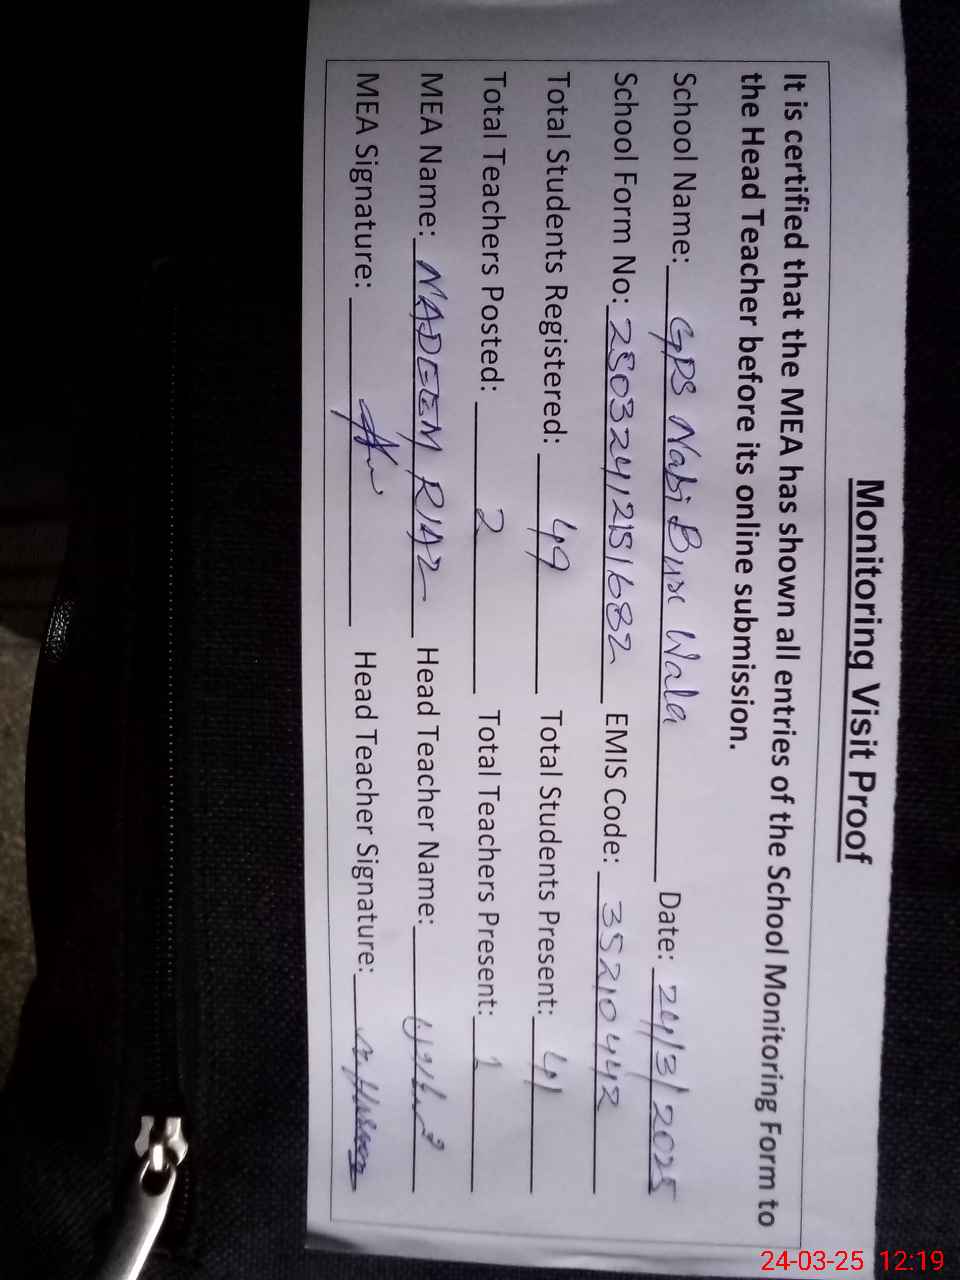 Monitoring Visit Proof
It is certified that the MEA has shown all entries of the School Monitoring Form to
the Head Teacher before its online submission.
School Name: GPS Nabi Bux Wala Date: 24/3/2025
School Form No: 25032412151682 EMIS Code: 35210442
Total Students Registered: 49 Total Students Present: 41
Total Teachers Posted: 2 Total Teachers Present: 1
MEA Name: NADEEM RIAZ Head Teacher Name:
MEA Signature: Head Teacher Signature:
24-03-25 12:19